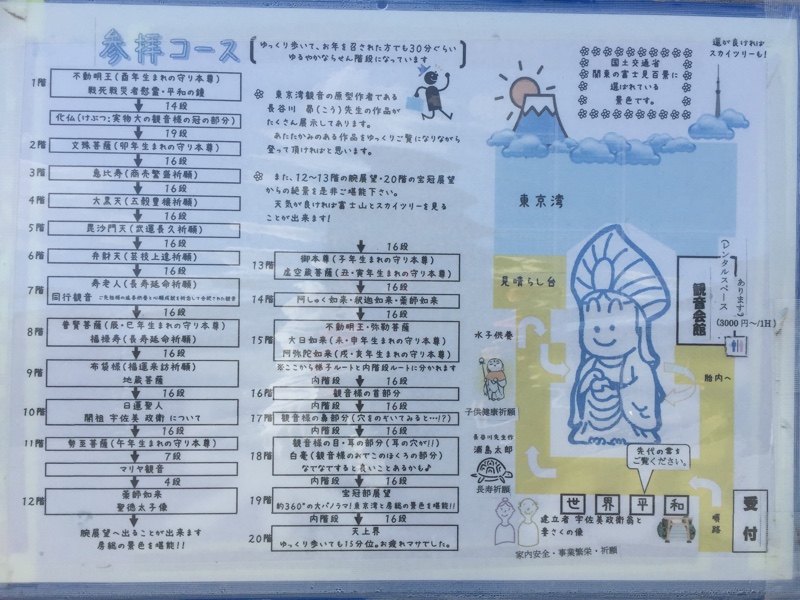 参拝コース
ゆっくり歩いて、お年を召された方でも30分ぐらい
ゆるやからせん階段になっています
1階
不動明王(酉年生まれの守り本尊)
戦死戦災者慰霊・平和の鐘
14段
化仏(けぶつ;実物大の観音様の冠の部分)
19段
2階
文殊菩薩(卯年生まれの守り本尊)
16段
3階
恵比寿(商売繁盛祈願)
16段
4階
大黒天(五穀豊穣祈願)
16段
5階
毘沙門天(武運長久祈願)
16段
6階
弁財天(芸技上達祈願)
16段
7階
寿老人(長寿延命祈願)
同行観音
16段
8階
普賢菩薩(辰・巳年生まれの守り本尊)
福禄寿(長寿延命祈願)
16段
9階
布袋様(福運来訪祈願)
地蔵菩薩
16段
10階
日蓮聖人
開祖 宇佐美 政衛 について
16段
11階
勢至菩薩(午年生まれの守り本尊)
7段
マリヤ観音
4段
12階
薬師如来
聖徳太子像
腕展望へ出ることが出来ます
房総の景色を堪能!!
東京湾観音の原型作者である
長谷川 昂(こう)先生の作品が
たくさん展示してあります。
あたたかみのある作品をゆっくりご覧になりながら
登って頂ければと思います。
また、12~13階の腕展望・20階の宝冠展望
からの絶景を是非ご堪能下さい。
天気が良ければ富士山とスカイツリーを見る
ことが出来ます!
16段
13階
御本尊(子年生まれの守り本尊)
虚空蔵菩薩(丑・寅年生まれの守り本尊)
16段
14階
阿しゅく如来・釈迦如来・薬師如来
16段
15階
不動明王・弥勒菩薩
大日如来(未・申年生まれの守り本尊)
阿弥陀如来(戌・亥年生まれの守り本尊)
※ここから梯子ルートと内階段ルートに分かれます
内階段 16段
16階
観音様の首部分
内階段 16段
17階
観音様の鼻部分(穴をのぞいてみると…!?)
内階段 16段
18階
観音様の目・耳の部分(耳の穴が!!)
白毫(観音様のおでこのほくろの部分)
なでなですると良いことあるかも♪
内階段 16段
19階
宝冠部展望
約360°の大パノラマ!東京湾と房総の景色を堪能!!
内階段 16段
20階
天上界
ゆっくり歩いても15分位。お疲れサマでした。
国土交通省
関東の富士見百景に
選ばれている
景色です。
運が良ければ
スカイツリーも!
東京湾
見晴らし台
レンタルスペース
あります♪
(3000円~/1H)
観音会館
水子供養
胎内へ
子供健康祈願
長谷川先生作
浦島太郎
長寿祈願
先代の書を
ご覧ください。
世界平和
建立者 宇佐美政衛翁と
妻さくの像
家内安全・事業繁栄・祈願
順路
受付